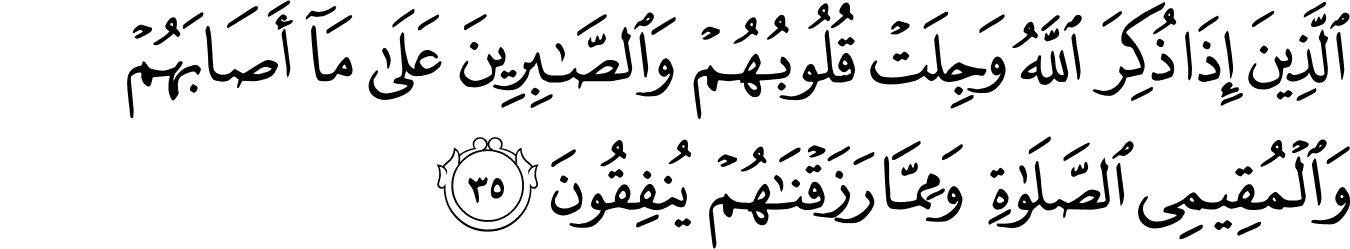 ٱلَّذِينَ إِذَا ذُكِرَ ٱللَّهُ وَجِلَتْ قُلُوبُهُمْ وَٱلصَّـٰبِرِينَ عَلَىٰ مَآ أَصَابَهُمْ
وَٱلْمُقِيمِى ٱلصَّلَوٰةِ وَمِمَّا رَزَقْنَـٰهُمْ يُنفِقُونَ ٣٥